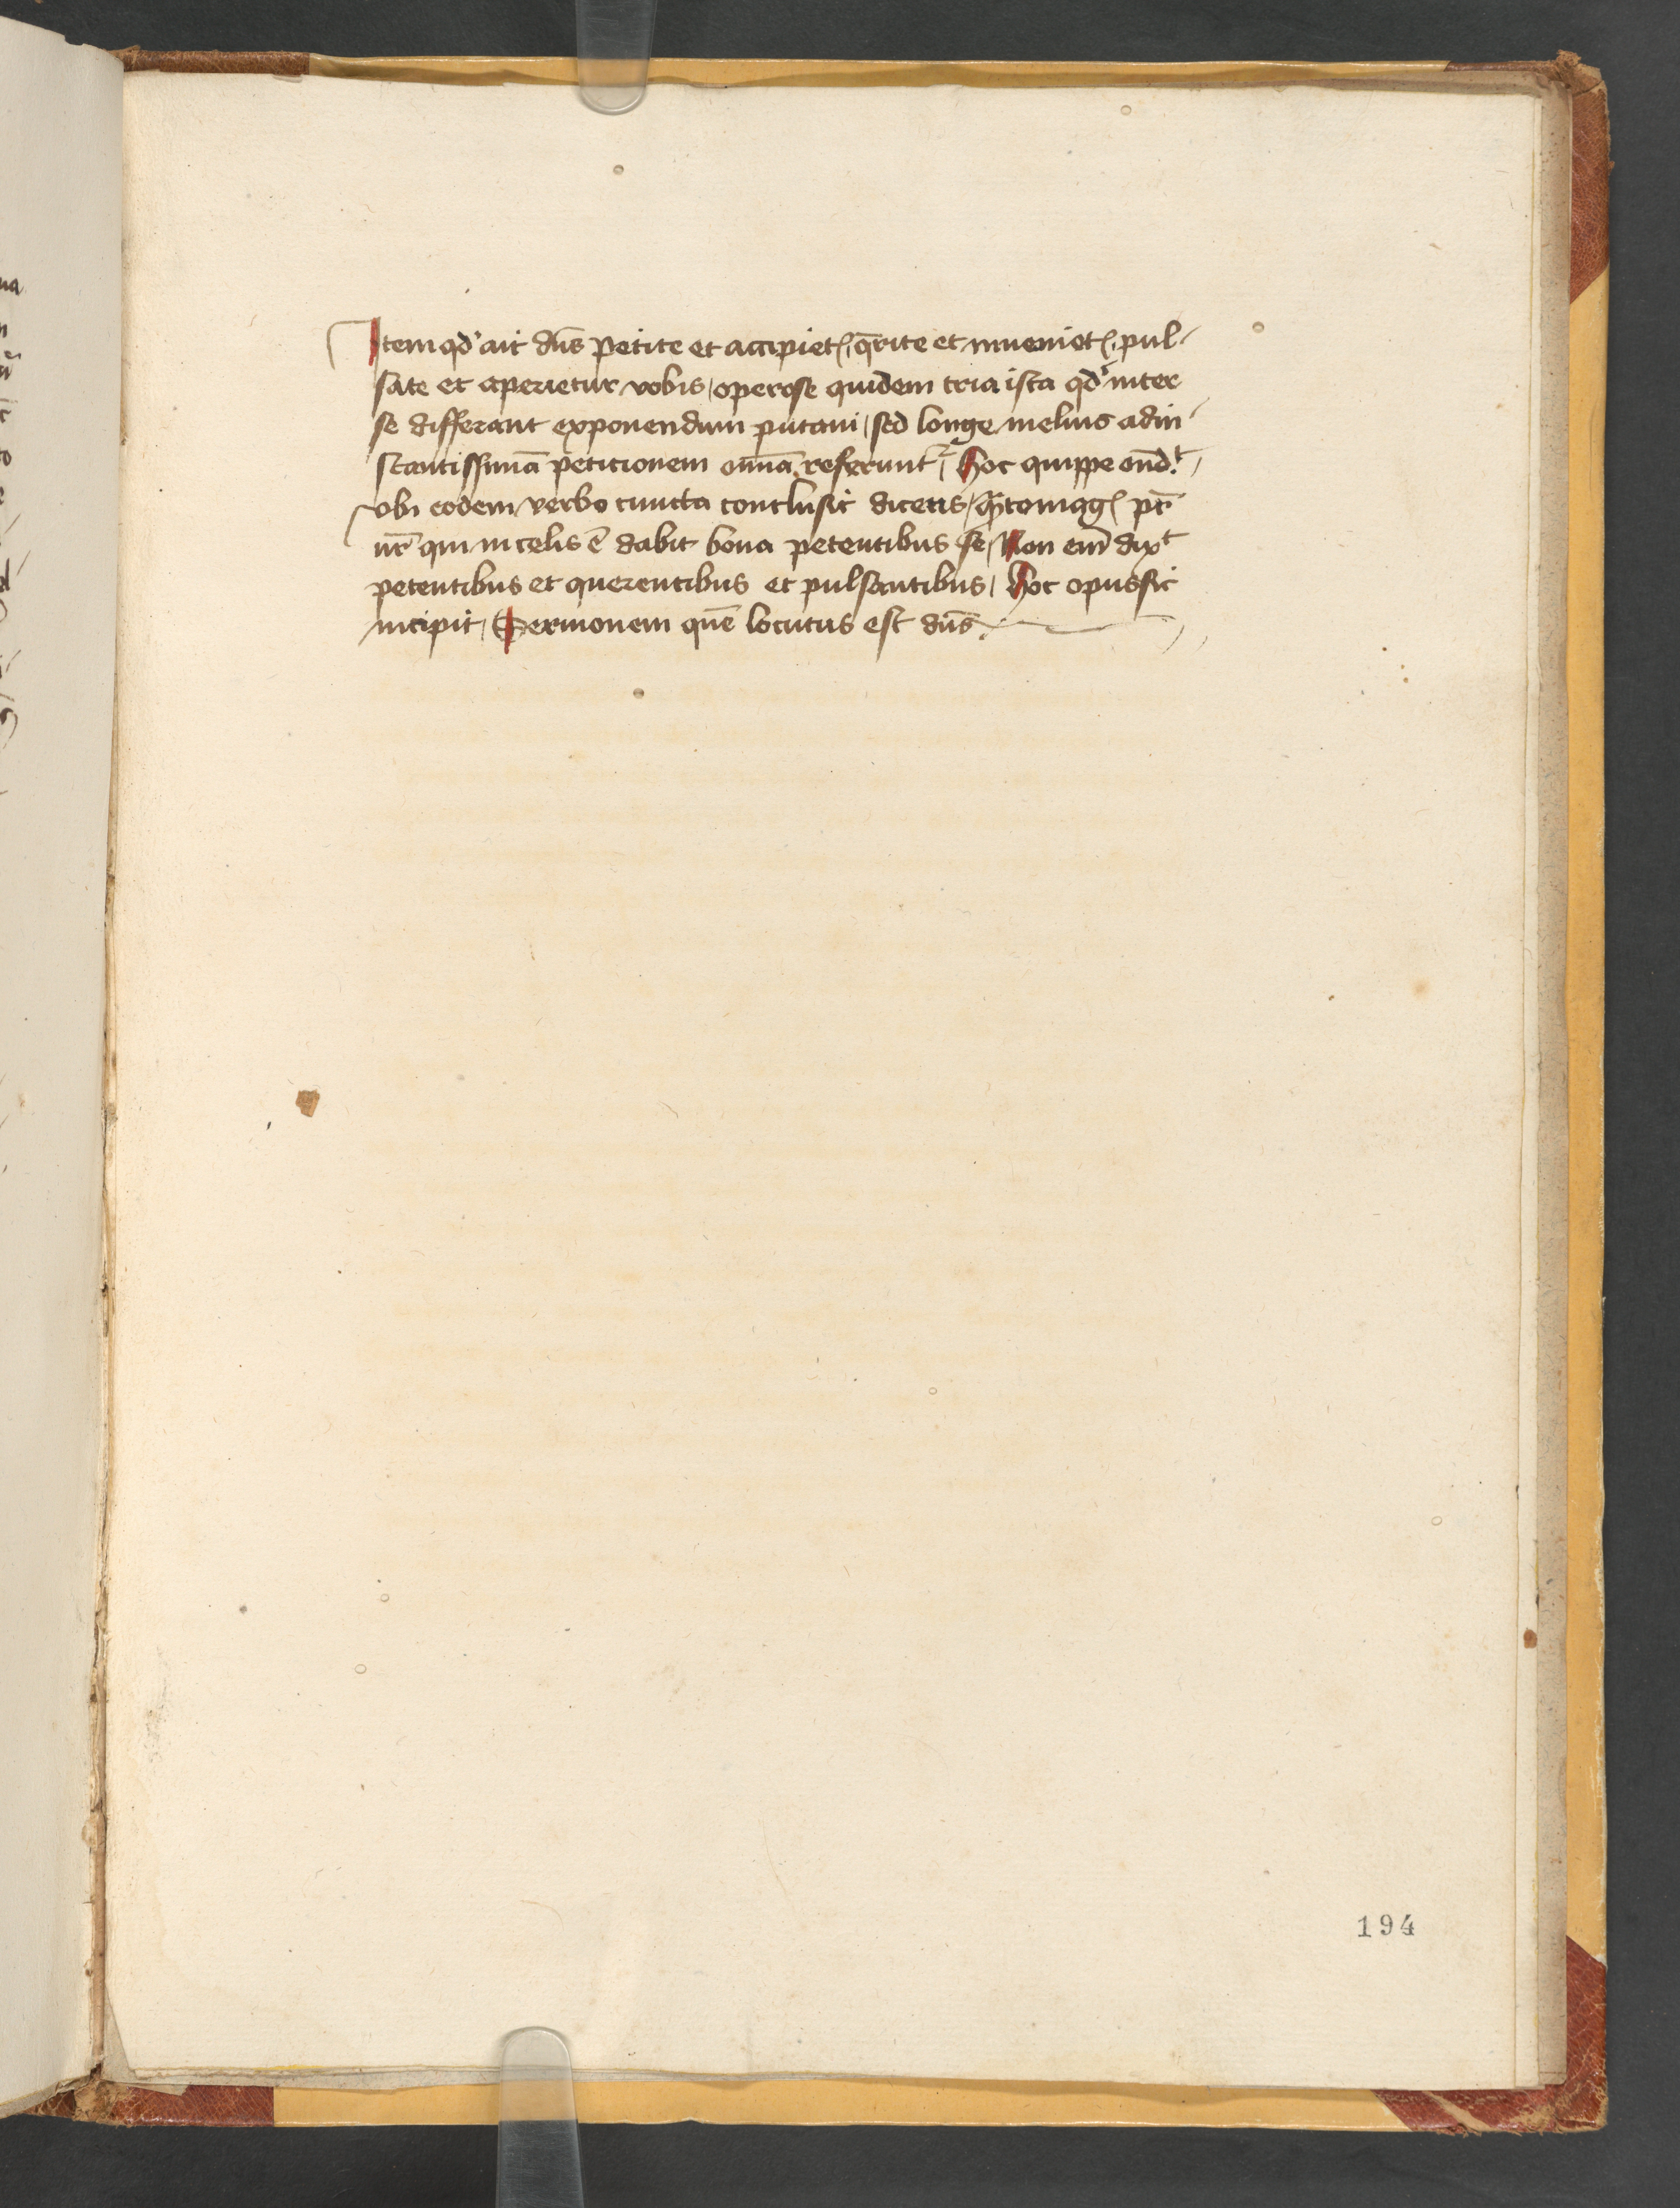 Item qd' ait dn̄s Petite et accipietꝭ, q̄rite et invenietꝭ, pul-
sate et aperietur vobis, operose quidem tria ista qd' inter
se differant exponendum putavi, sed longe melius ad in-
stantissimā peticionem omīa referunt᷑, Hoc quippe ond.t,
vbi eodem verbo cuncta conclusit dicens, pr̄
nr̄ qui in celis ē dabit bona petentibus se, Non em̄ dixt
petentibus et querentibus et pulsantibus, Hoc opus sic
incipit, Sermonem quē locutus est dn̄s.
194